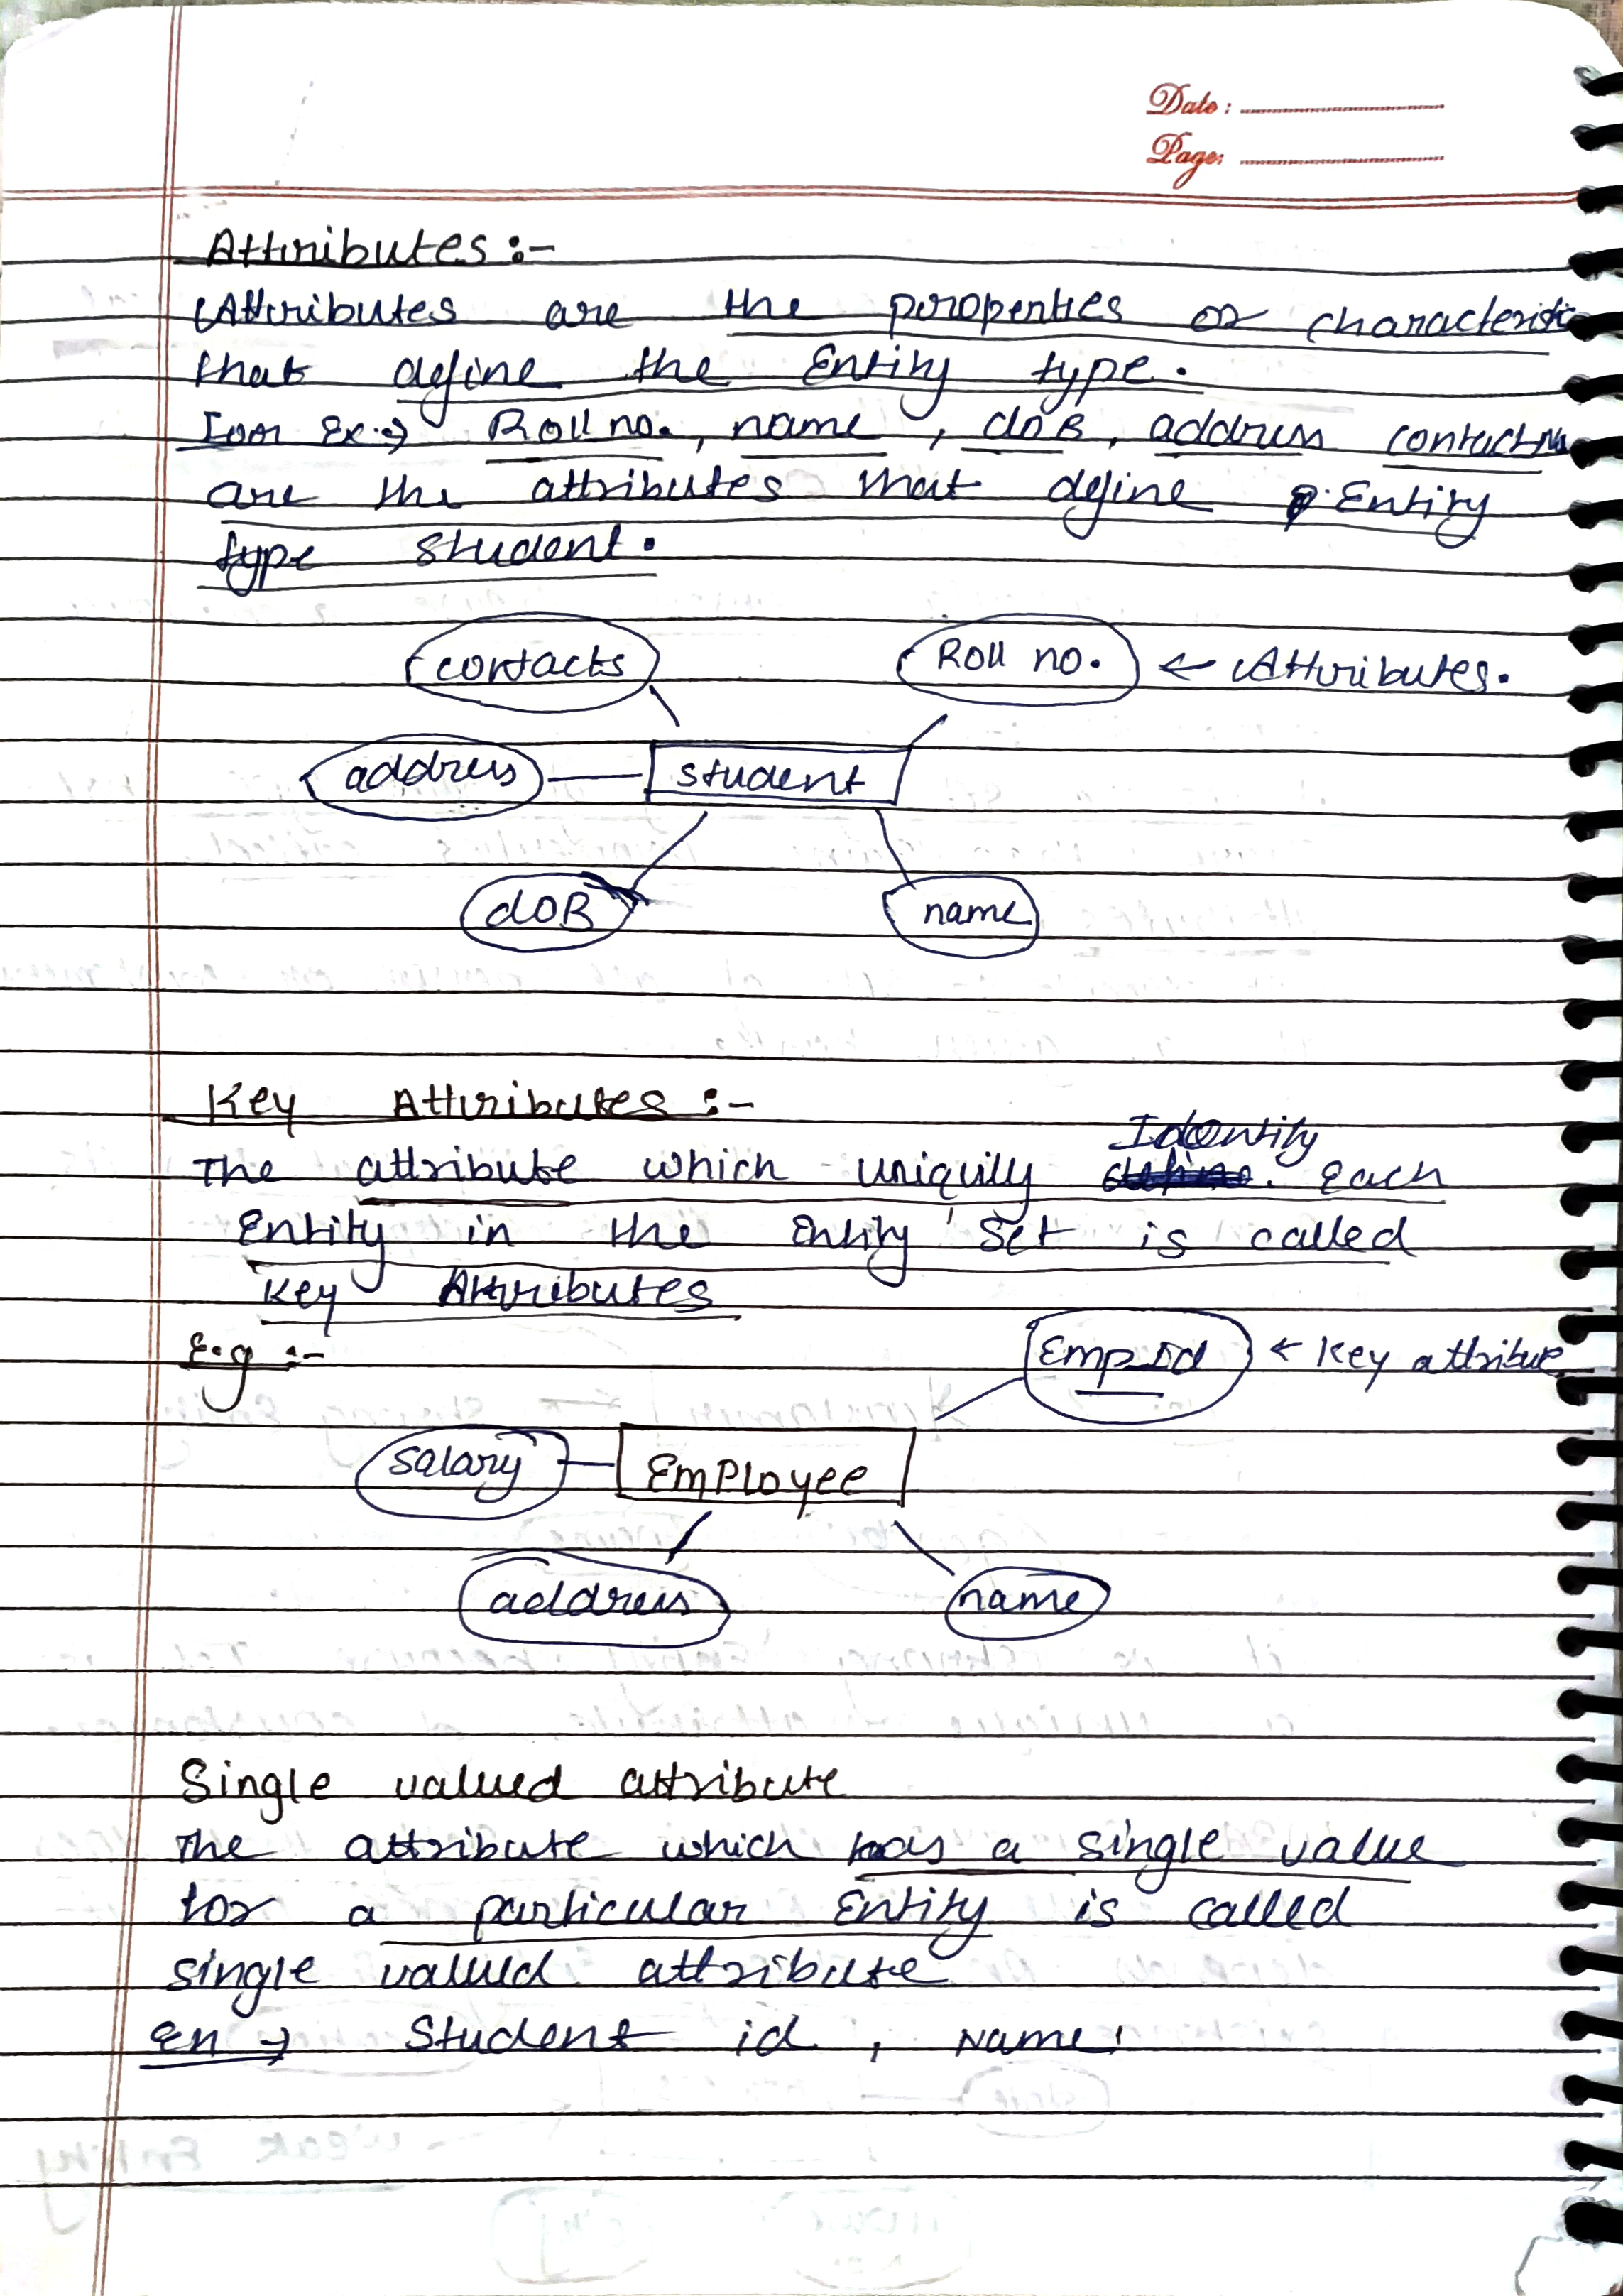 Date :
Page:
Attributes :-
Attributes are the properties or characteristic
that define the Entity type.
For Ex:→ Roll no., name, doB, address contact No
are the attributes that define Entity
type student.
contacts
Roll no. ← Attributes.
address
student
dOB
name
Key Attributes :-
Identity
The attribute which uniquily define. Each
Entity in the Entity Set is called
Key Attributes
E.g :-
Emp_id ← Key attribue
salary
EmPloyee
address
name
Single valued attribute
The attribute which has a single value
for a particular Entity is called
single valued attribute
En → Student id, Name!